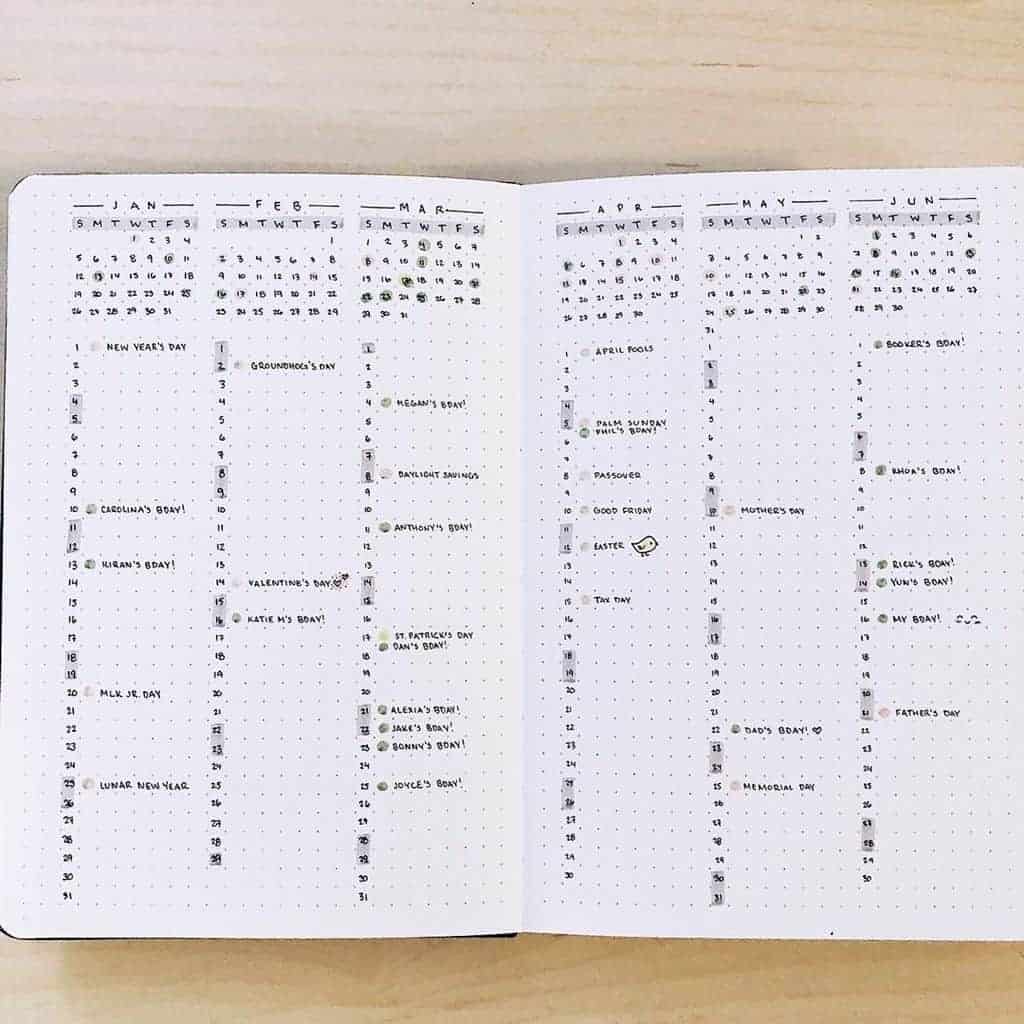 JAN
S M T W T F S
1 2 3 4
5 6 7 8 9 10 11
12 13 14 15 16 17 18
19 20 21 22 23 24 25
26 27 28 29 30 31
1 NEW YEAR'S DAY
2
3
4
5
6
7
8
9
10 CAROLINA'S BDAY!
11
12
13 KIRAN'S BDAY!
14
15
16
17
18
19
20 MLK JR. DAY
21
22
23
24
25 LUNAR NEW YEAR
26
27
28
29
30
31
FEB
S M T W T F S
1
2 3 4 5 6 7 8
9 10 11 12 13 14 15
16 17 18 19 20 21 22
23 24 25 26 27 28 29
1
2 GROUNDHOG'S DAY
3
4
5
6
7
8
9
10
11
12
13
14 VALENTINE'S DAY
15
16 KATIE M'S BDAY!
17
18
19
20
21
22
23
24
25
26
27
28
29
MAR
S M T W T F S
1 2 3 4 5 6 7
8 9 10 11 12 13 14
15 16 17 18 19 20 21
22 23 24 25 26 27 28
29 30 31
1
2
3
4 MEGAN'S BDAY!
5
6
7
8 DAYLIGHT SAVINGS
9
10
11 ANTHONY'S BDAY!
12
13
14
15
16
17 ST. PATRICK'S DAY
DAN'S BDAY!
18
19
20
21 ALEXIA'S BDAY!
22 JAKE'S BDAY!
23 BONNY'S BDAY!
24
25 JOYCE'S BDAY!
26
27
28
29
30
31
APR
S M T W T F S
1 2 3 4
5 6 7 8 9 10 11
12 13 14 15 16 17 18
19 20 21 22 23 24 25
26 27 28 29 30
1 APRIL FOOLS
2
3
4
5 PALM SUNDAY
PHIL'S BDAY!
6
7
8 PASSOVER
9
10 GOOD FRIDAY
11
12 EASTER
13
14
15 TAX DAY
16
17
18
19
20
21
22
23
24
25
26
27
28
29
30
MAY
S M T W T F S
1 2
3 4 5 6 7 8 9
10 11 12 13 14 15 16
17 18 19 20 21 22 23
24 25 26 27 28 29 30
31
1
2
3
4
5
6
7
8
9
10 MOTHER'S DAY
11
12
13
14
15
16
17
18
19
20
21
22 DAD'S BDAY!
23
24
25 MEMORIAL DAY
26
27
28
29
30
31
JUN
S M T W T F S
1 2 3 4 5 6
7 8 9 10 11 12 13
14 15 16 17 18 19 20
21 22 23 24 25 26 27
28 29 30
1 BOOKER'S BDAY!
2
3
4
5
6
7
8 RHOA'S BDAY!
9
10
11
12
13 RICK'S BDAY!
14 YUN'S BDAY!
15
16 MY BDAY!
17
18
19
20
21 FATHER'S DAY
22
23
24
25
26
27
28
29
30